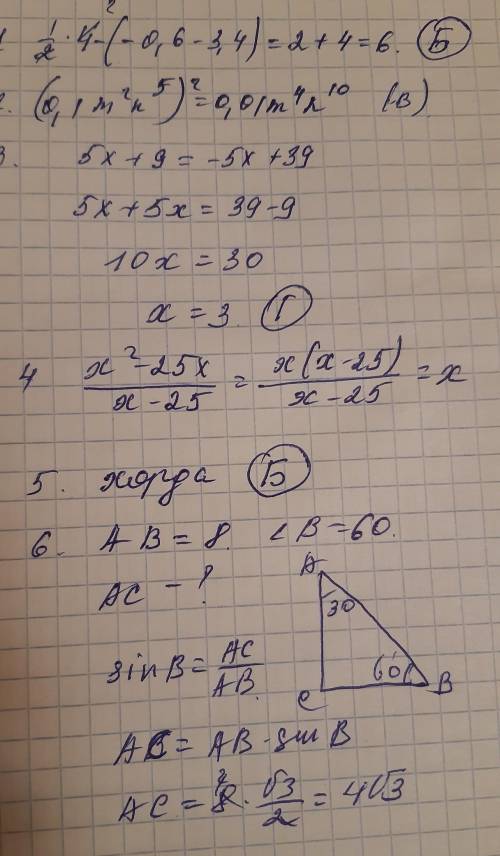 1. 1/2 · 4 - (-0,6 - 3,4) = 2 + 4 = 6. (Б)
2. (0,1 m²n⁵)² = 0,01m⁴n¹⁰ (В)
3. 5x + 9 = -5x + 39
5x + 5x = 39 - 9
10x = 30
x = 3. (Г)
4 (x² - 25x)/(x - 25) = x(x - 25)/(x - 25) = x
5. хорда (Б)
6. AB = 8. ∠B = 60.
AC - ?
A
30
60
C B
sin B = AC/AB
AC = AB · sin B
AC = 8 · √3/2 = 4√3